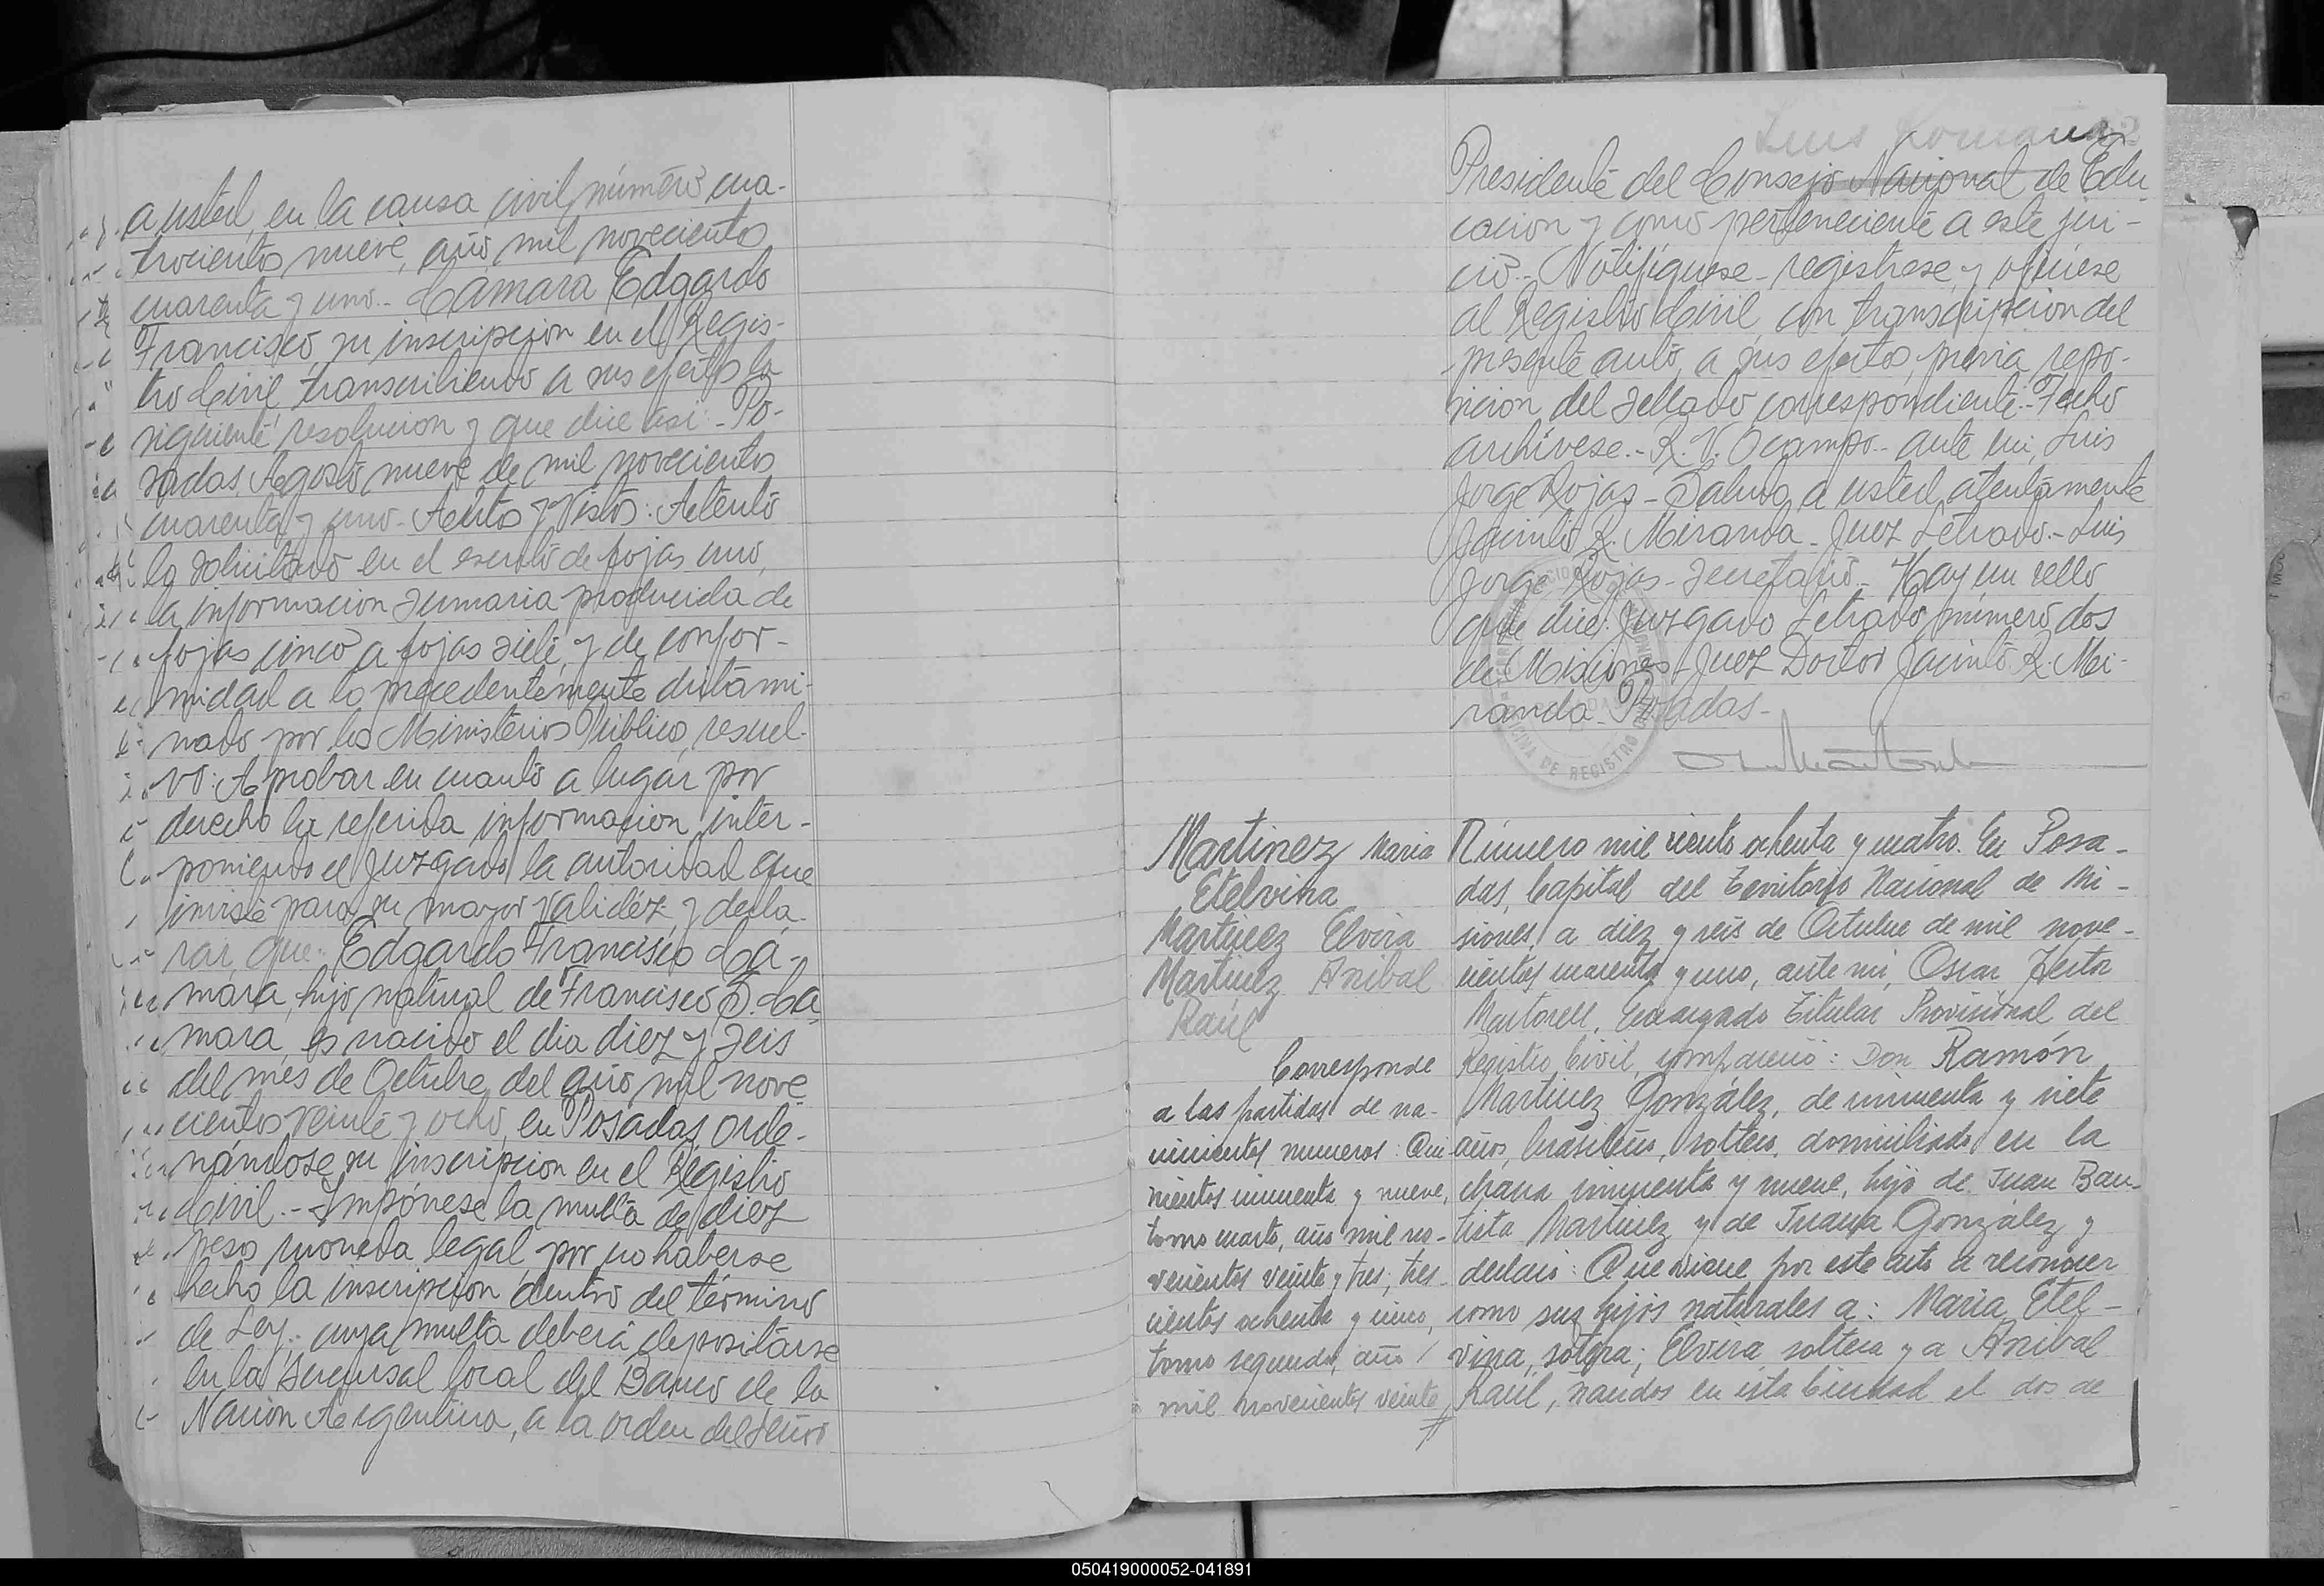 a usted, en la causa civil, número cua-
trocientos nueve, año mil novecientos
cuarenta y uno.- Cámara Edgardo
Francisco, su inscripcion en el Regis-
tro Civil, transcribiendo a sus efectos la
siguiente resolucion y que dice asi:- Po-
sadas, Agosto nueve de mil novecientos
cuarenta y uno.- Autos y Vistos: Atento
lo solicitado en el escrito de fojas uno,
la informacion sumaria producida de
fojas cinco a fojas siete, y de confor-
midad a lo precedentemente dictami-
nado por los Ministerios Público, resuel-
vo: Aprobar en cuanto a lugar por
derecho la referida informacion inter-
poniendo el Juzgado la autoridad que
inviste para su mayor validéz, y decla-
rar que: Edgardo Francisco Cá-
mara, hijo natural de Francisco S. Cá
mara, es nacido el dia diez y seis
del mes de Octubre, del año mil nove
cientos veinte y ocho, en Posadas, orde-
nándose su inscripcion en el Registro
Civil.- Impónese la multa de diez
pesos moneda legal, por no haberse
hecho la inscripcion dentro del término
de Ley; cuya multa deberá depositarse
en la Sucursal local del Banco de la
Nacion Argentina, a la orden del Señor
Luis Romano
Presidente del Consejo Nacional de Edu
cacion y como perteneciente a este jui-
cio.- Notifiquese - registrese, y ofíciese
al Registro Civil, con transcripcion del
presente auto, a sus efectos, previa repo-
sicion del sellado correspondiente.- Fecho
archívese.- R. V. Ocampo.- ante mi, Luis
Jorge Rojas - Saluda a usted atentamente
Jacinto R. Miranda - Juez Letrado.- Luis
Jorge Rojas - Secretario - Hay un sello
que dice: Juzgado Letrado número dos
de Misiones - Juez Doctor Jacinto R. Mi-
randa - Posadas -
DE REGISTRO
Martinez Maria
Etelvina
Martinez Elvira
Martinez Anibal
Raúl
Corresponde
a las partidas de na-
cimientos numeros: Qui
nientos cincuenta y nueve,
tomo cuarto, año mil no-
vecientos veinte y tres; tres-
cientos ochenta y cinco,
tomo segundo, año
mil novecientos veinte
Número mil ciento ochenta y cuatro. En Posa-
das, Capital del Territorio Nacional de Mi-
siones, a diez y seis de Octubre de mil nove-
cientos cuarenta y uno, ante mi, Oscar Hector
Martorell, Encargado Titular Provisional del
Registro Civil, compareció: Don Ramón
Martinez González, de cincuenta y siete
años, brasileño, soltero, domiciliado en la
chacra cincuenta y nueve, hijo de Juan Bau-
tista Martinez y de Juana González y
declaró: Que viene por este acto a reconocer
como sus hijos naturales a: Maria Etel-
vina, soltera; Elvira soltera y a Anibal
Raúl, nacidos en esta Ciudad el dos de
050419000052-041891